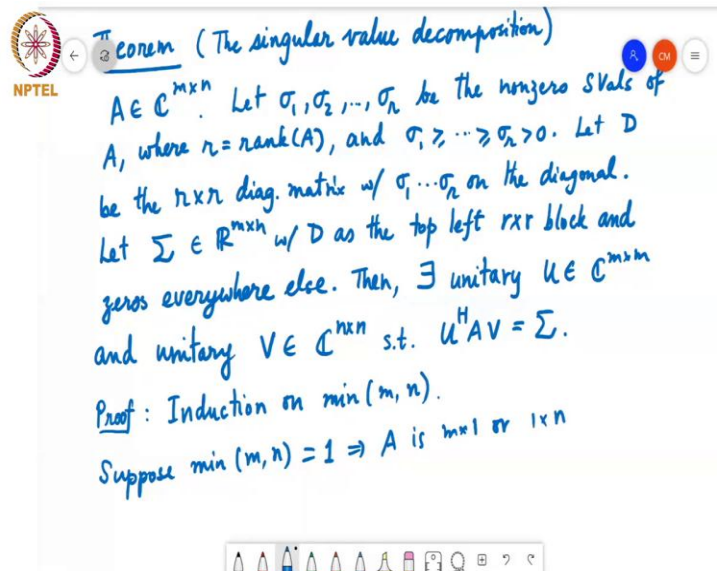 Theorem (The singular value decomposition)
A ∈ ℂ^{m×n}. Let σ₁, σ₂, ..., σ_r be the nonzero SVals of
A, where r = rank(A), and σ₁ ≥ ... ≥ σ_r > 0. Let D
be the r×r diag. matrix w/ σ₁ ... σ_r on the diagonal.
Let Σ ∈ ℝ^{m×n} w/ D as the top left r×r block and
zeros everywhere else. Then, ∃ unitary U ∈ ℂ^{m×m}
and unitary V ∈ ℂ^{n×n} s.t. U^H A V = Σ.
Proof : Induction on min(m, n).
Suppose min(m, n) = 1 ⇒ A is m×1 or 1×n
NPTEL
CM